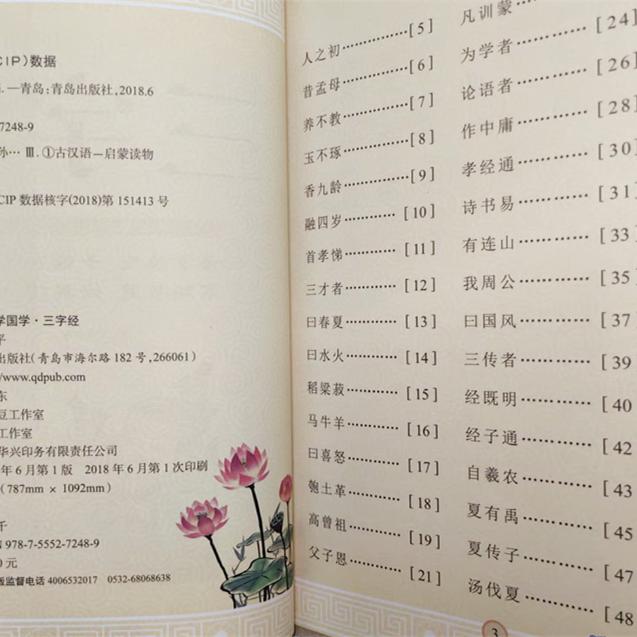 CIP）数据
.—青岛：青岛出版社，2018.6
7248-9
孙… Ⅲ.①古汉语—启蒙读物
CIP 数据核字(2018)第 151413 号
学国学·三字经
平
出版社（青岛市海尔路 182 号，266061）
//www.qdpub.com
东
豆工作室
工作室
华兴印务有限责任公司
年 6 月第 1 版 2018 年 6 月第 1 次印刷
(787mm × 1092mm)
千
N 978-7-5552-7248-9
0 元
版监督电话 4006532017 0532-68068638
人之初…………[5]
昔孟母…………[6]
养不教…………[7]
玉不琢…………[8]
香九龄…………[9]
融四岁…………[10]
首孝悌…………[11]
三才者…………[12]
曰春夏…………[13]
曰水火…………[14]
稻粱菽…………[15]
马牛羊…………[16]
曰喜怒…………[17]
匏土革…………[18]
高曾祖…………[19]
父子恩…………[21]
凡训蒙
为学者…………[24]
论语者…………[26]
作中庸…………[28]
孝经通…………[30]
诗书易…………[31]
有连山…………[33]
我周公…………[35
曰国风…………[37
三传者…………[39
经既明…………[40
经子通…………[42
自羲农…………[43
夏有禹…………[45
夏传子…………[47
汤伐夏…………[48
3